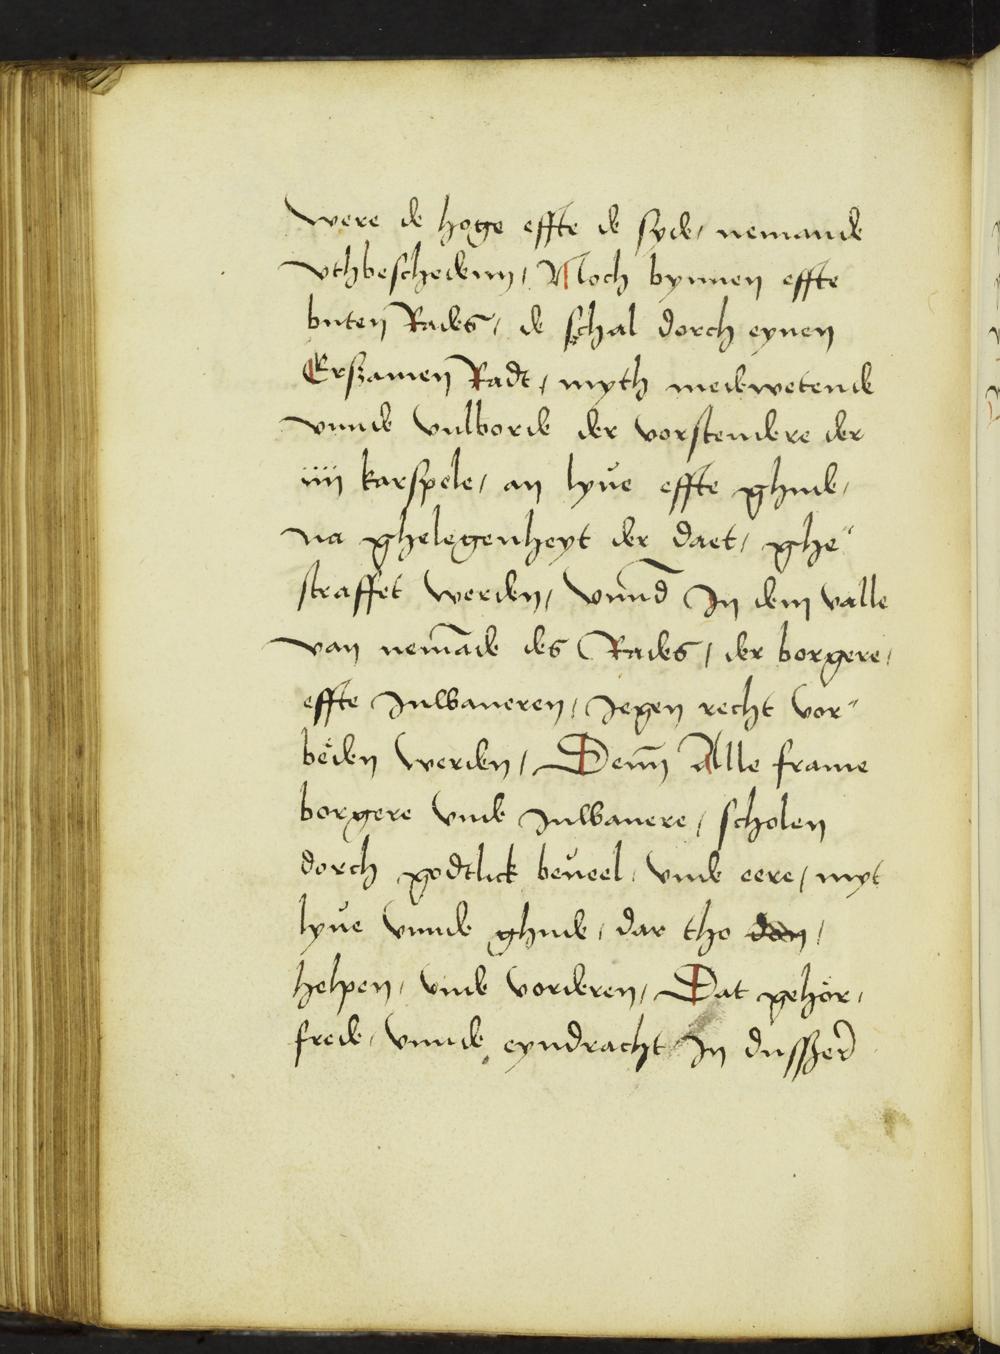 were de hoge effte de syde, nemande
vthbeschedenn, Noch bynnen effte
buten Rades, de schal dorch eynen
Erszamen Radt, myth medewetende
vnnde vulborde der vorstendere der
iiij karspele, an lyue effte ghude,
na ghelegenheyt der daet, ghe"
straffet werden, vnnd In dem valle
van nemāde des Rades, der borgere,
effte Inwaneren, Jegen recht vor"
beden werden, Denn Alle frame
borgere vnde Inwanere, scholen
dorch godtlick beueel, vnde eere, myt
lyue vnnde ghude, dar tho don,
helpen, vnde vorderen, Dat gehör,
frede, vnnde eyndracht In dusszer